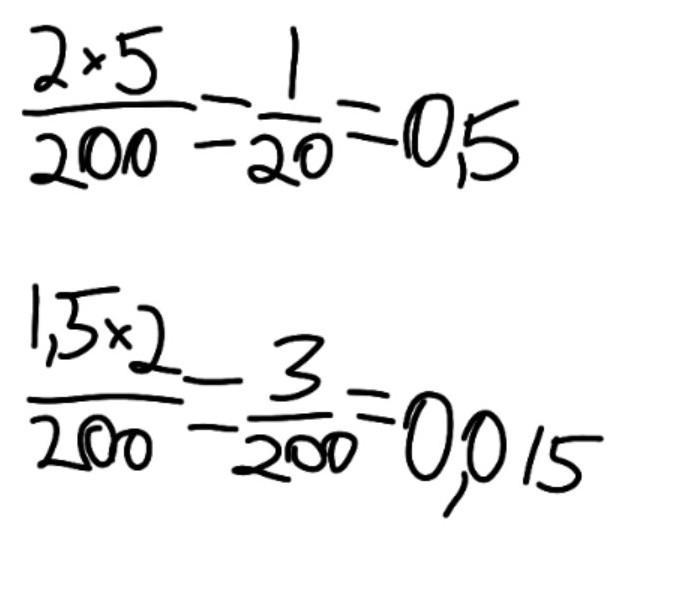 2×5/200 = 1/20 = 0,5
1,5×2/200 = 3/200 = 0,015